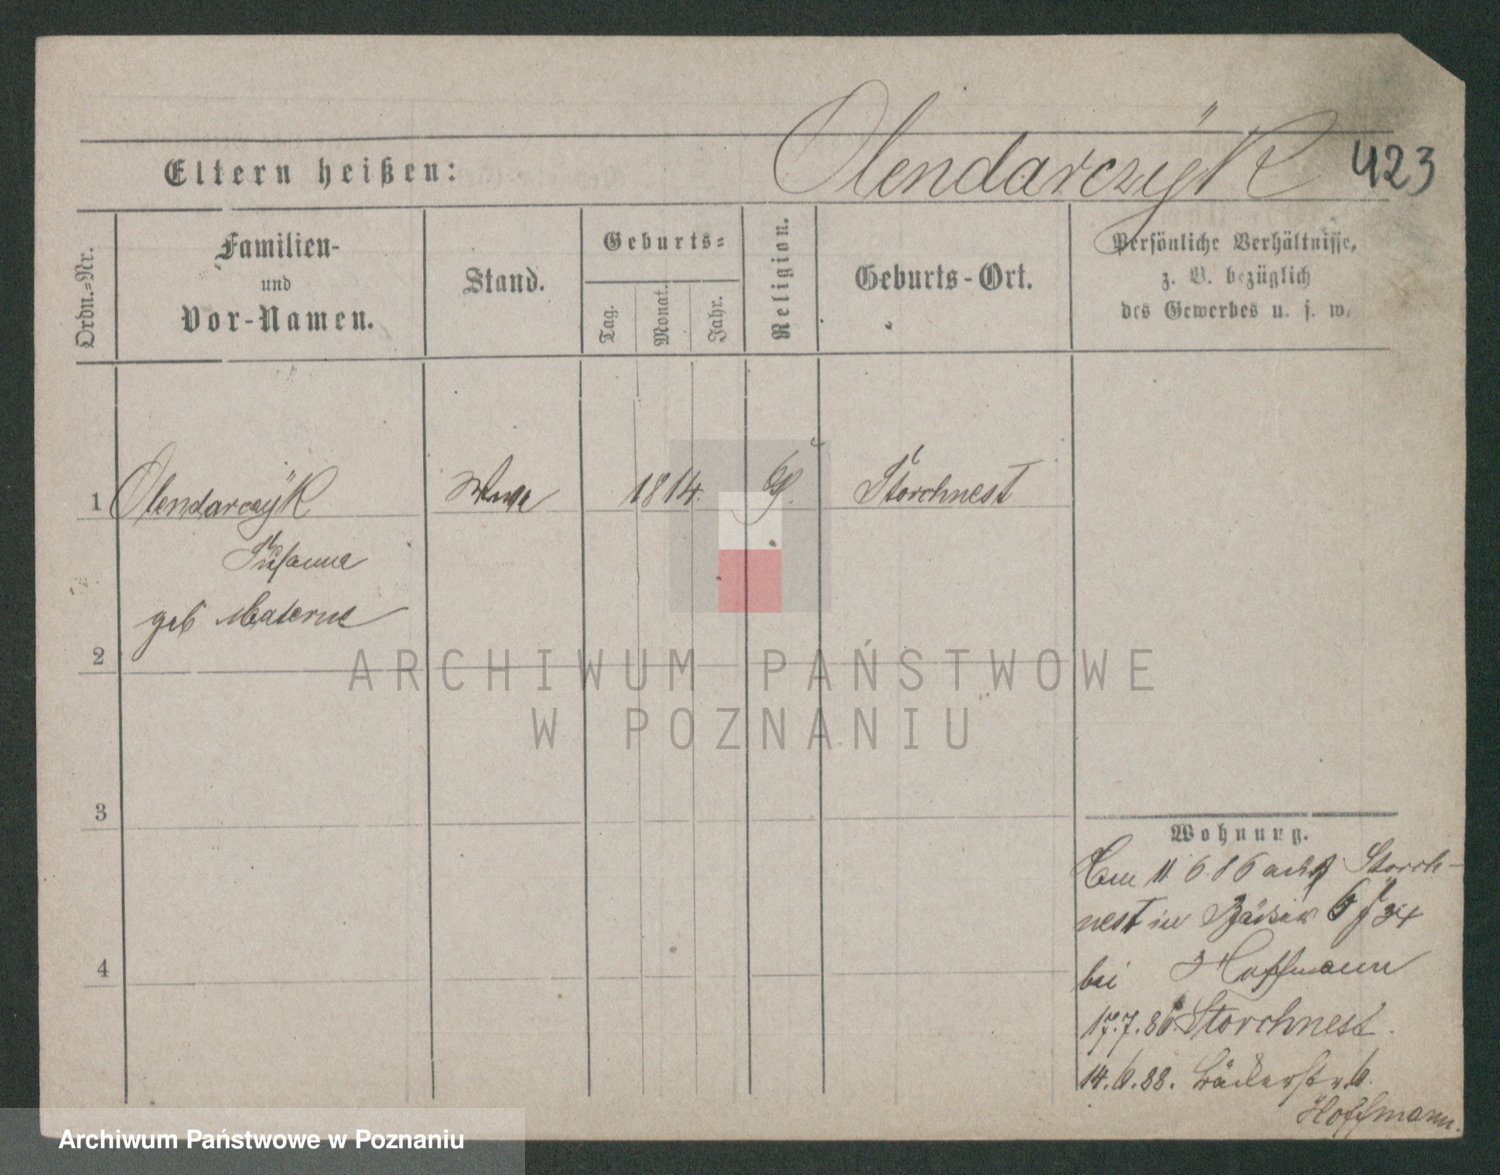 Olendarczÿk 423
Eltern heißen:
Ordn.-Nr.
Familien-
und
Vor-Namen.
Stand.
Geburts-
Tag.
Monat.
Jahr.
Religion.
Geburts-Ort.
Persönliche Verhältnisse,
z. B. bezüglich
des Gewerbes u. s. w.
1 Olendarczÿk Wwe 1814. Storchnest
Susanna
geb Materne
2
3
4
Wohnung.
Am 11 6. 86 aus Storch-
nest in 34
bei Hoffmann
17.7.86 Storchnest.
14.6.88. Bäckerstr. 6.
Hoffmann.
ARCHIWUM PAŃSTWOWE
W POZNANIU
Archiwum Państwowe w Poznaniu